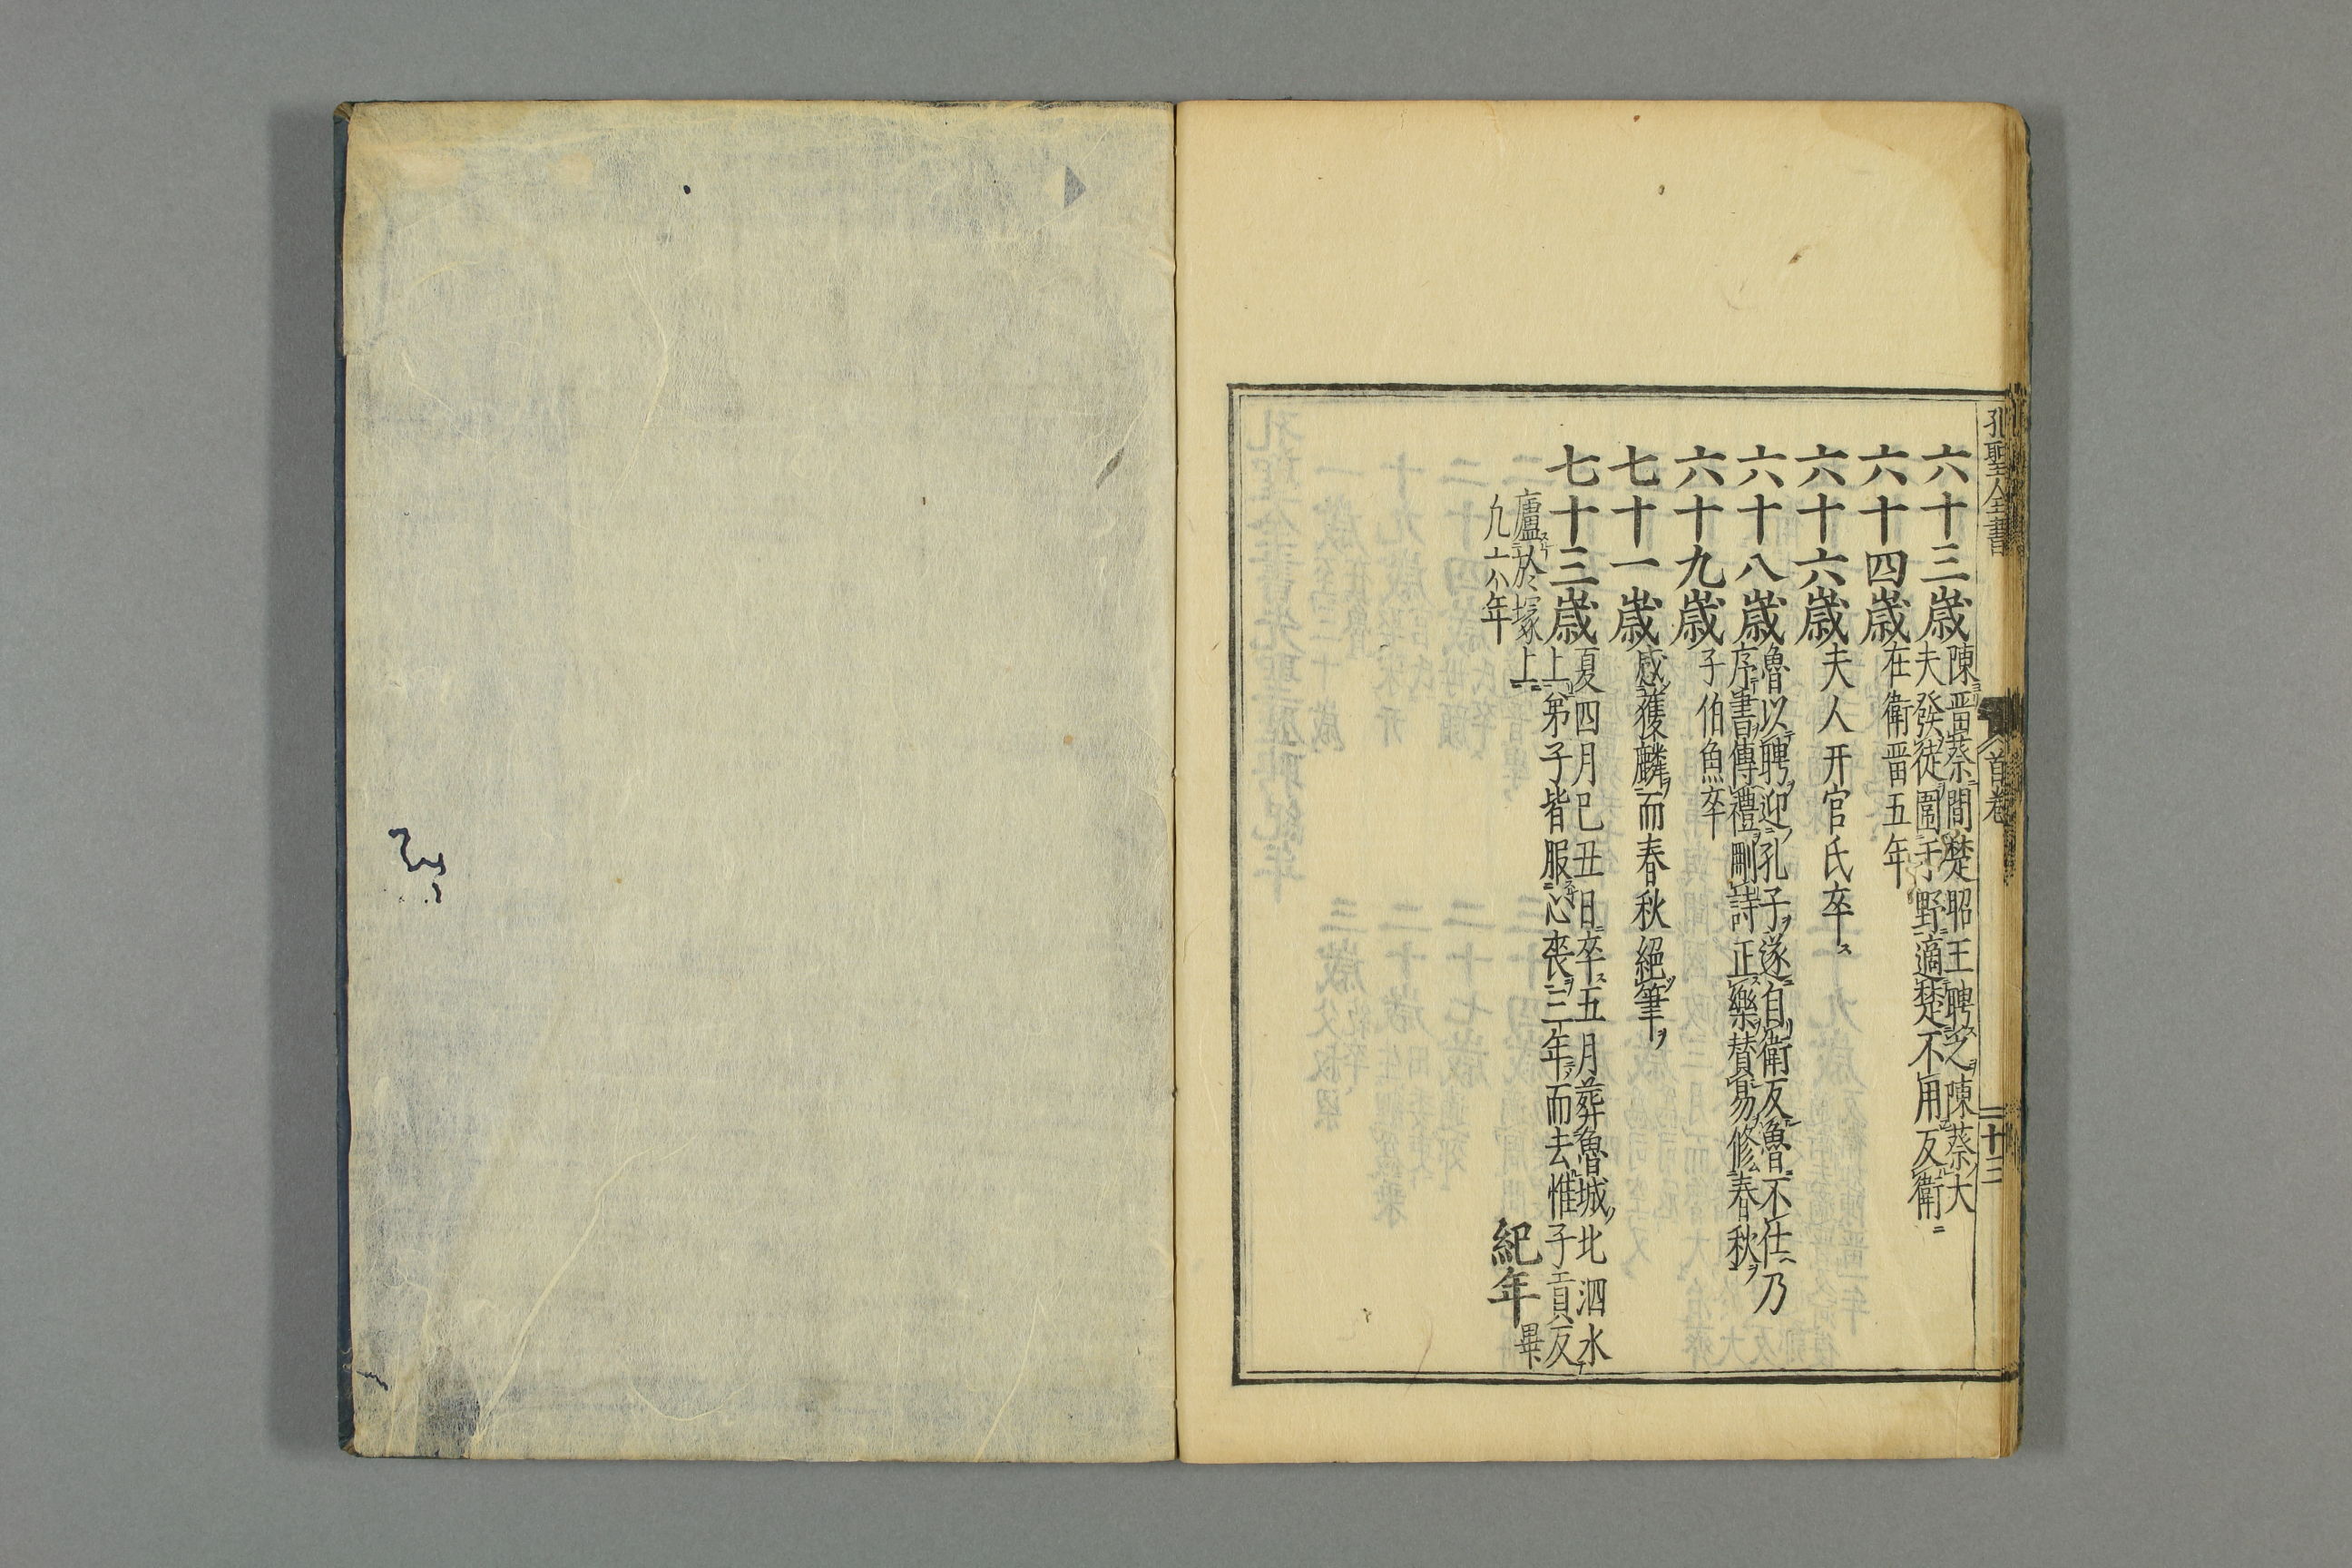 孔聖全書
首卷
十三
六十三歲
陳晋蔡間楚昭王聘之陳蔡大
夫發徒圍于野適楚不用反衛
六十四歲
在衛晋五年
六十六歲
夫人开官氏卒
六十八歲
魯以聘迎孔子遂自衛反魯不仕乃
序書傳禮刪詩正樂賛易修春秋
六十九歲
子伯魚卒
七十一歲
感獲麟而春秋絕筆
七十三歲
夏四月巳丑日卒五月葬魯城北泗水
上弟子皆服心喪三年而去惟子貢反
廬於塚上
凢六年
紀年畢